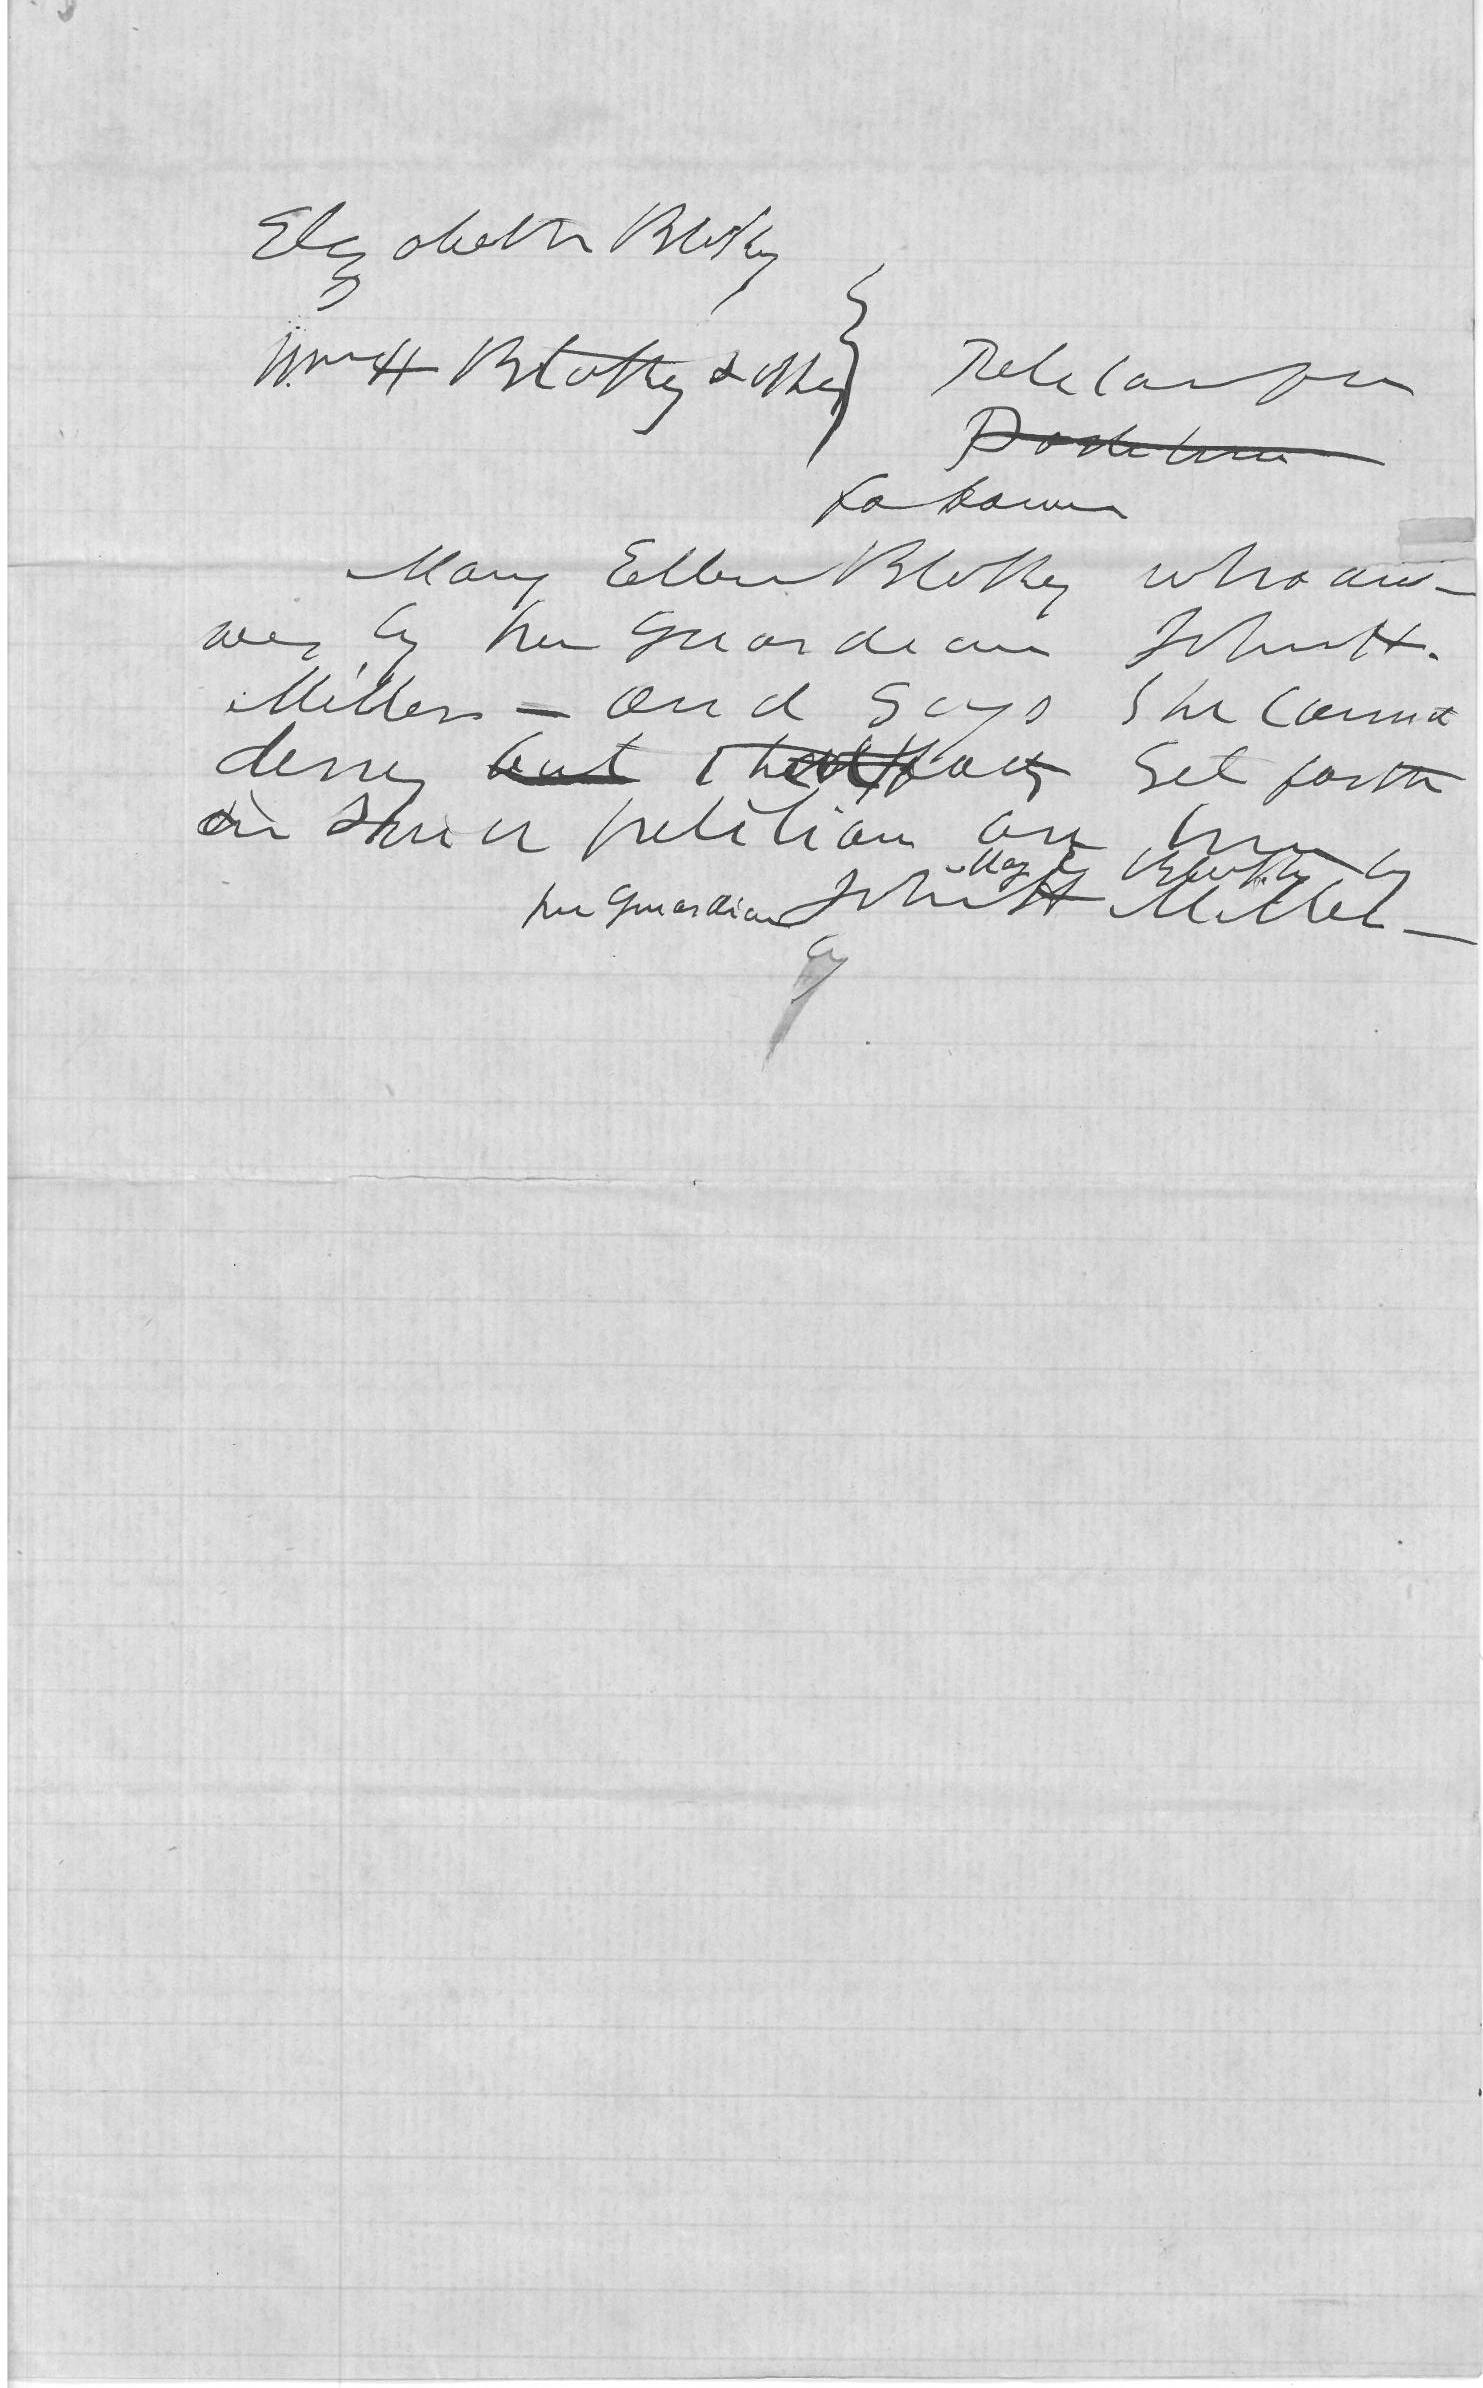 Elizabeth Blotky
Wm H Blotky & other } Petition for
to
Mary Ellen Blotky who ans-
wers by her Guardian John H.
Miller — and says she cannot
deney but that facts Set forth
in petition are true
Mary E Blotky by
her Guardian John H Miller —
by